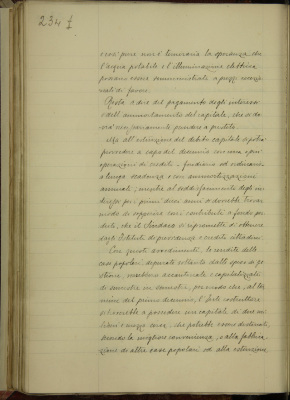 234
così pure non è temeraria la speranza che
l'acqua potabile e l'illuminazione elettrica
possano essere somministrate a prezzi eccezio-
nali di favore.
Resta a dire del pagamento degli interessi
e dell'ammortamento del capitale, che si do-
vrà necessariamente prendere a prestito.
All'estinzione del debito capitale si potrà
provvedere a capo del decennio con una
operazione di credito fondiario od ordinario
a lunga scadenza e con ammortizzazioni
annuali; mentre al soddisfacimento degli in-
teressi pei primi dieci anni si dovrebbe trovar
modo di sopperire coi contributi a fondo per-
duto, che il Sindaco si ripromette di ottenere
dagli Istituti di previdenza e credito cittadini.
Con questi accorgimenti, le rendite delle
case popolari, depurate soltanto dalle spese di ge-
stione, verrebbero accantonate e capitalizzate
di semestre in semestre, per modo che, al ter-
mine del primo decennio, l'Ente costruttore
si troverebbe a possedere un capitale di due mi-
lioni e mezzo circa, che potrebbe essere destinato,
secondo la migliore convenienza, o alla fabbrica-
zione di altre case popolari od alla estinzione